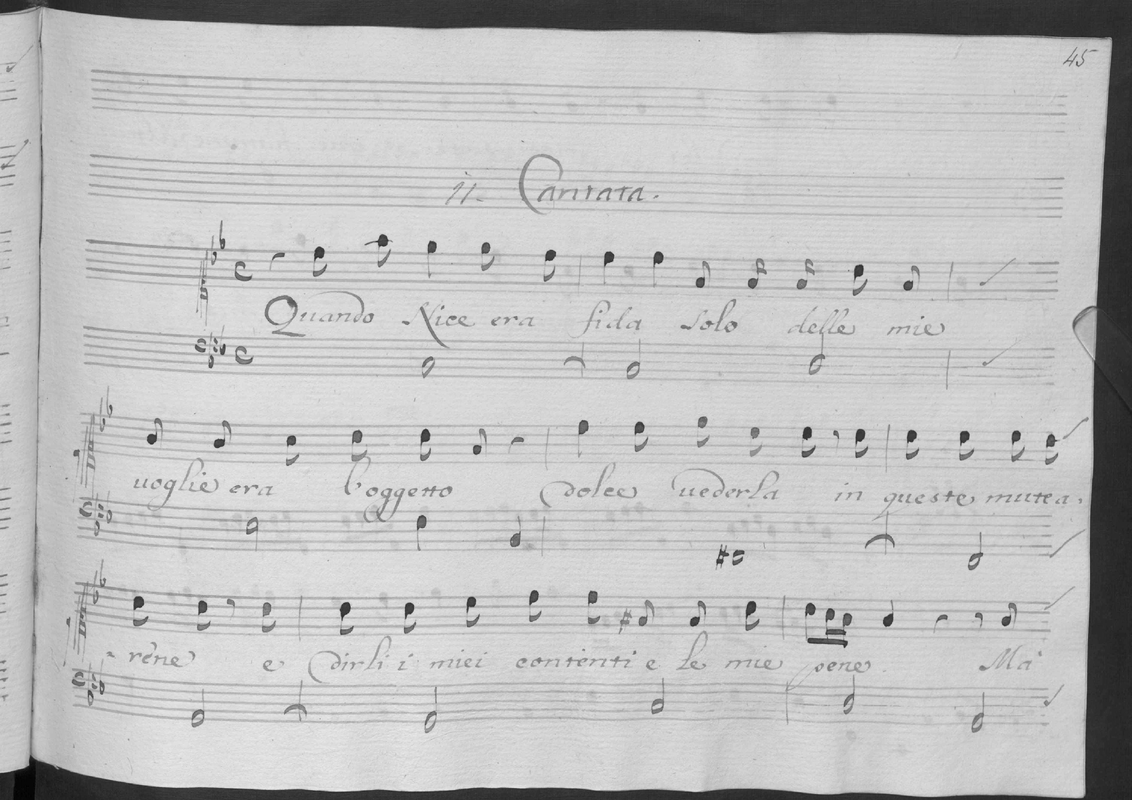 45
11. Cantata.
Quando Nice era fida solo delle mie
uoglie era l'oggetto dolce uederla in queste mute a,
- rene e dirli i miei contenti e le mie pene. Mà